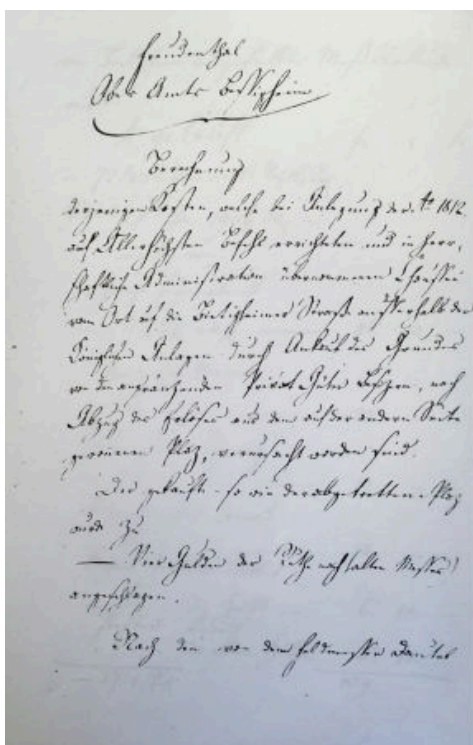 Freudenthal
Ober Amts Besigheim
Berechnung
derjenigen Kosten, welche bei Anlegung der ao 1812
auf Allerhöchsten Befehl errichteten und in herr¬
schaftliche Administration übernommenen Chaussee
vom Ort auf die Bietigheimer Straß ausserhalb der
Königlichen Anlagen durch Ankauf des Grundes
von den angränzenden Privat Güter Besizern, nach
Abzug des Erlöses aus dem auf der andern Seite
gewonnenen Plaz, verursacht worden sind.
Der gekaufte - so wie der abgetrettene Plaz
wurde zu
— Vier Gulden der Ruthe nach alten Messes
angeschlagen.
Nach den von dem Feldmesser Dautel